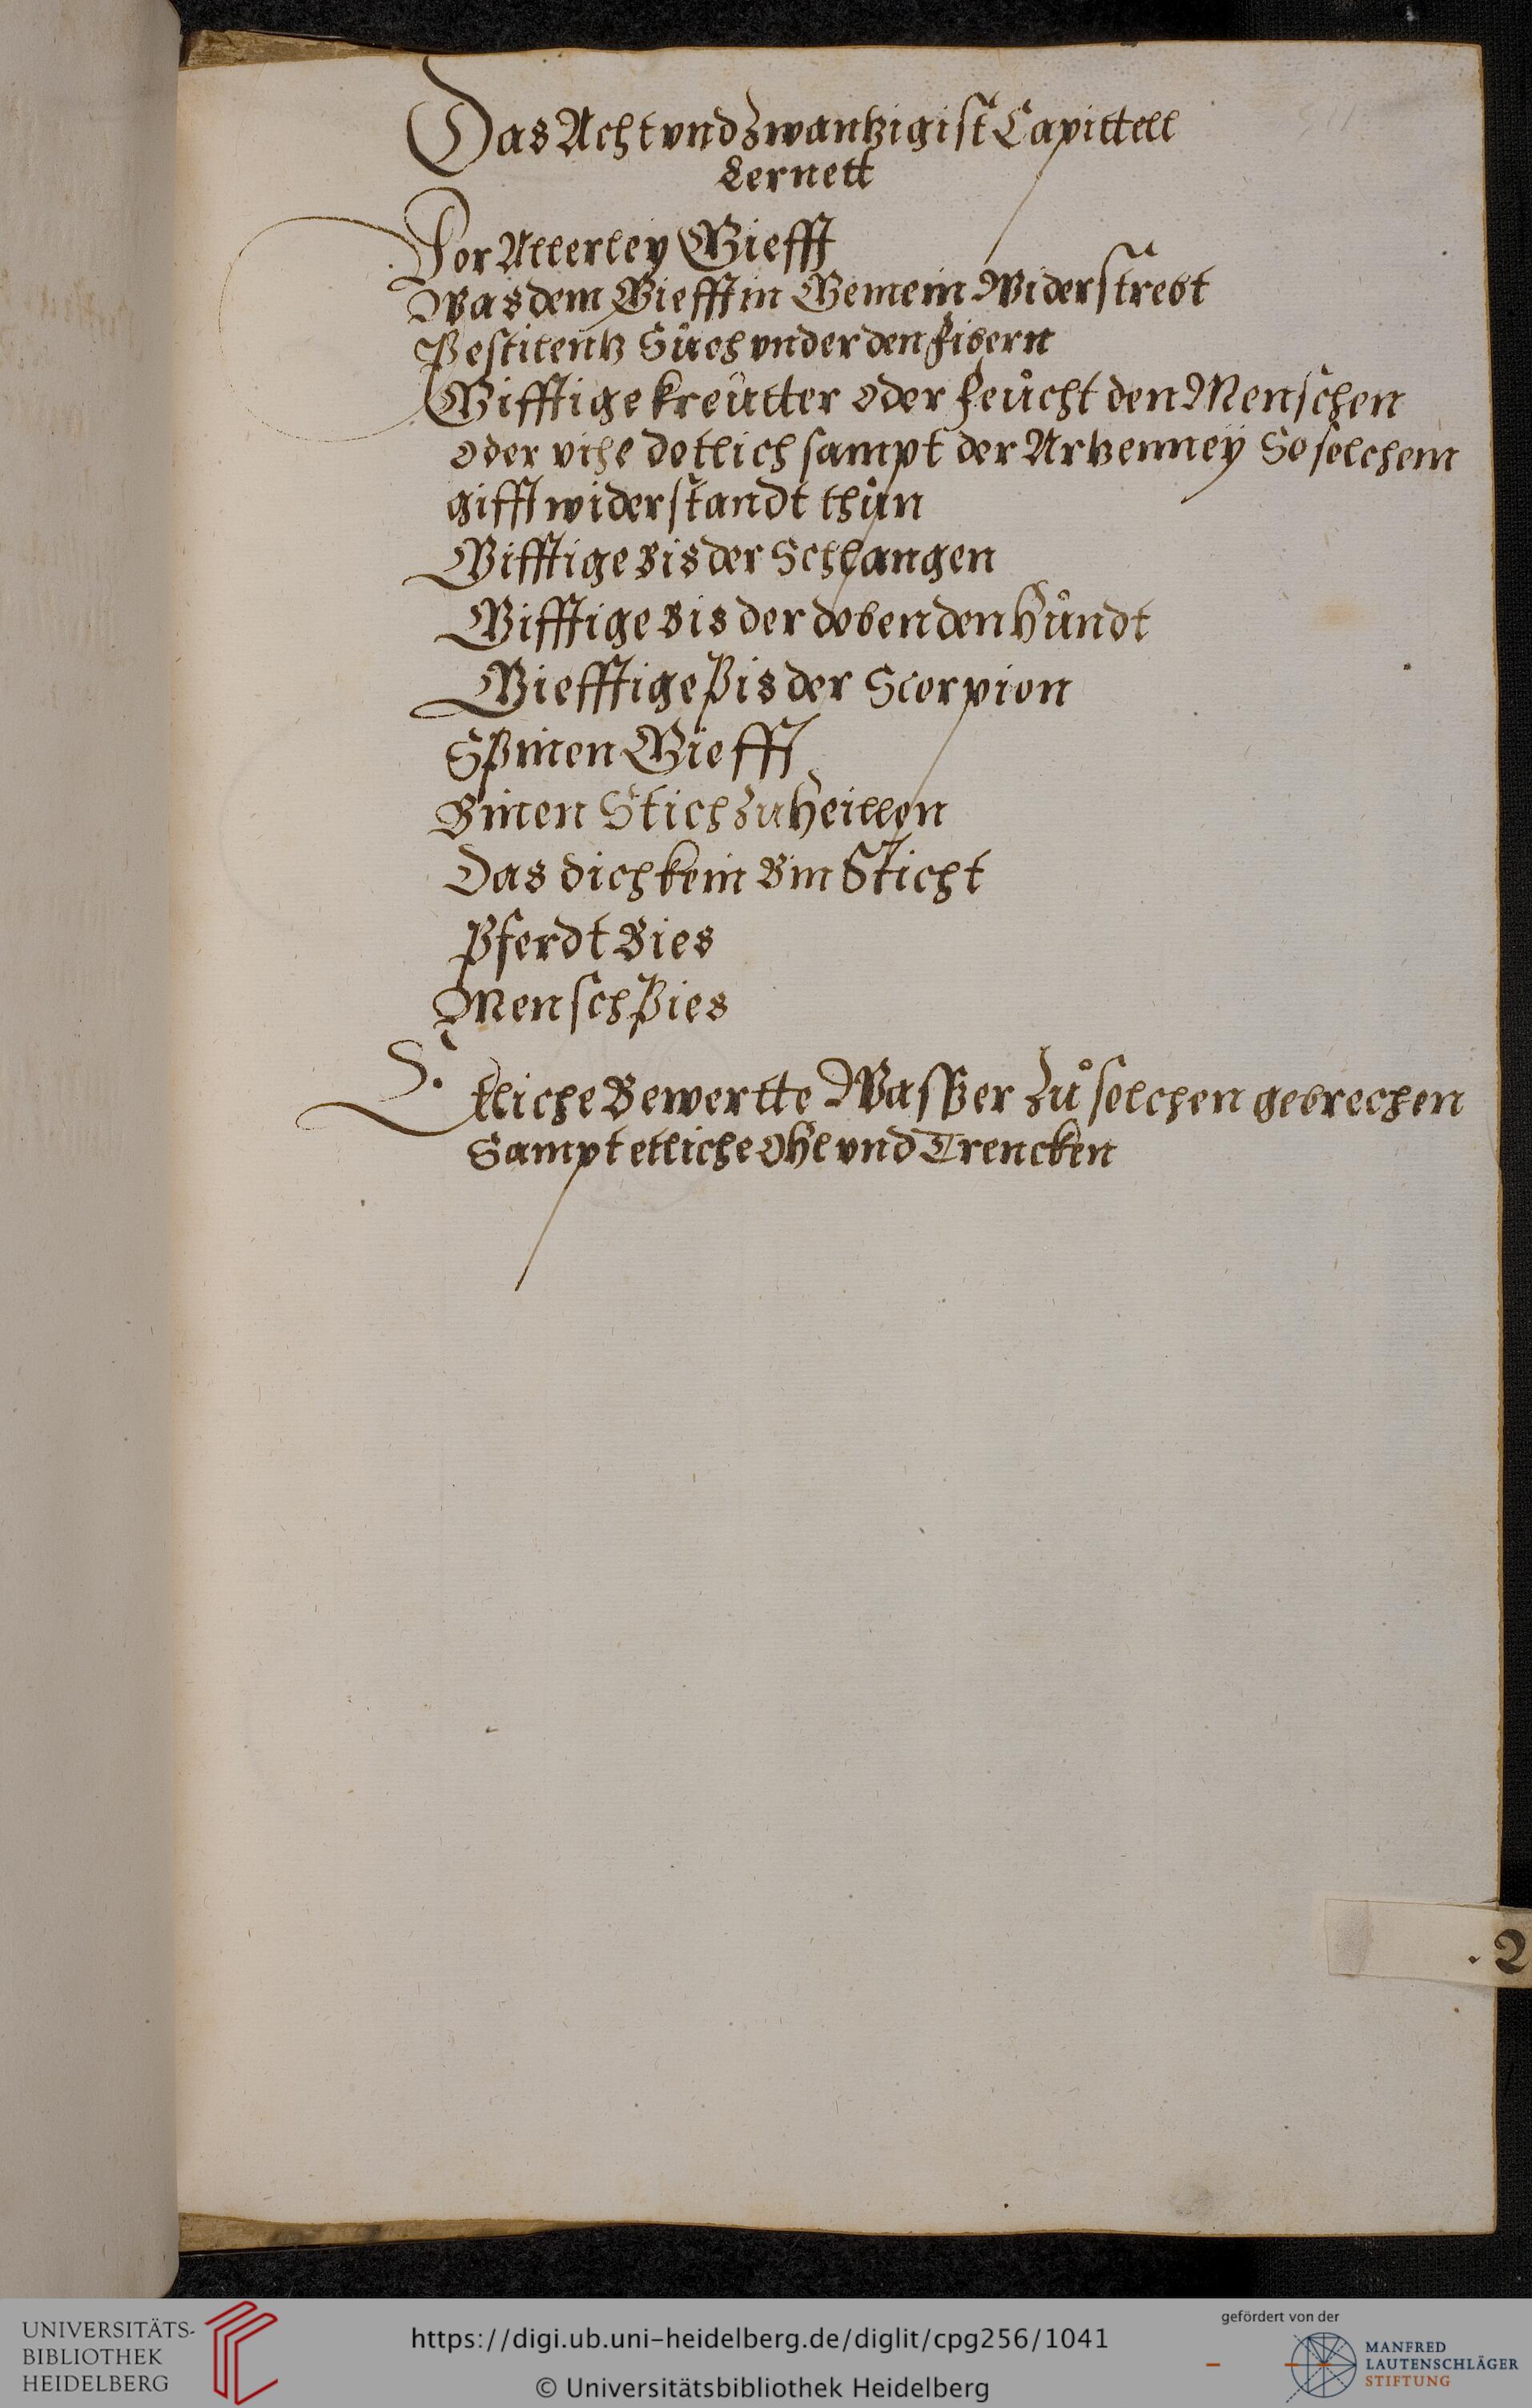 Das Acht vnd Zwantzigist Capittell
Lernett
Vor Allerley Giefft
Was dem Giefft in Gemein Widerstrebt
Pestilentz Sůch vnder den Fibern
Gifftige kreůtter oder Feůcht den Menschen
oder vihe dotlich sampt der Artzenneÿ So solchem
gifft widerstandt thůn
Gifftige Bis der Schlangen
Gifftige Bis der dobenden Hůndt
Giefftige Bis der Scorpion
Spinen Giefft
Binen Stich zu Heillen
Das dich kein Bin Sticht
Pferdt Bies
Mensch Bies
Etliche Bewertte Wasser Zů solchen gebrechen
Sampt etliche Ohl vnd Trencken
. 2
UNIVERSITÄTS-
BIBLIOTHEK
HEIDELBERG
https://digi.ub.uni-heidelberg.de/diglit/cpg256/1041
© Universitätsbibliothek Heidelberg
gefördert von der
MANFRED
LAUTENSCHLÄGER
STIFTUNG